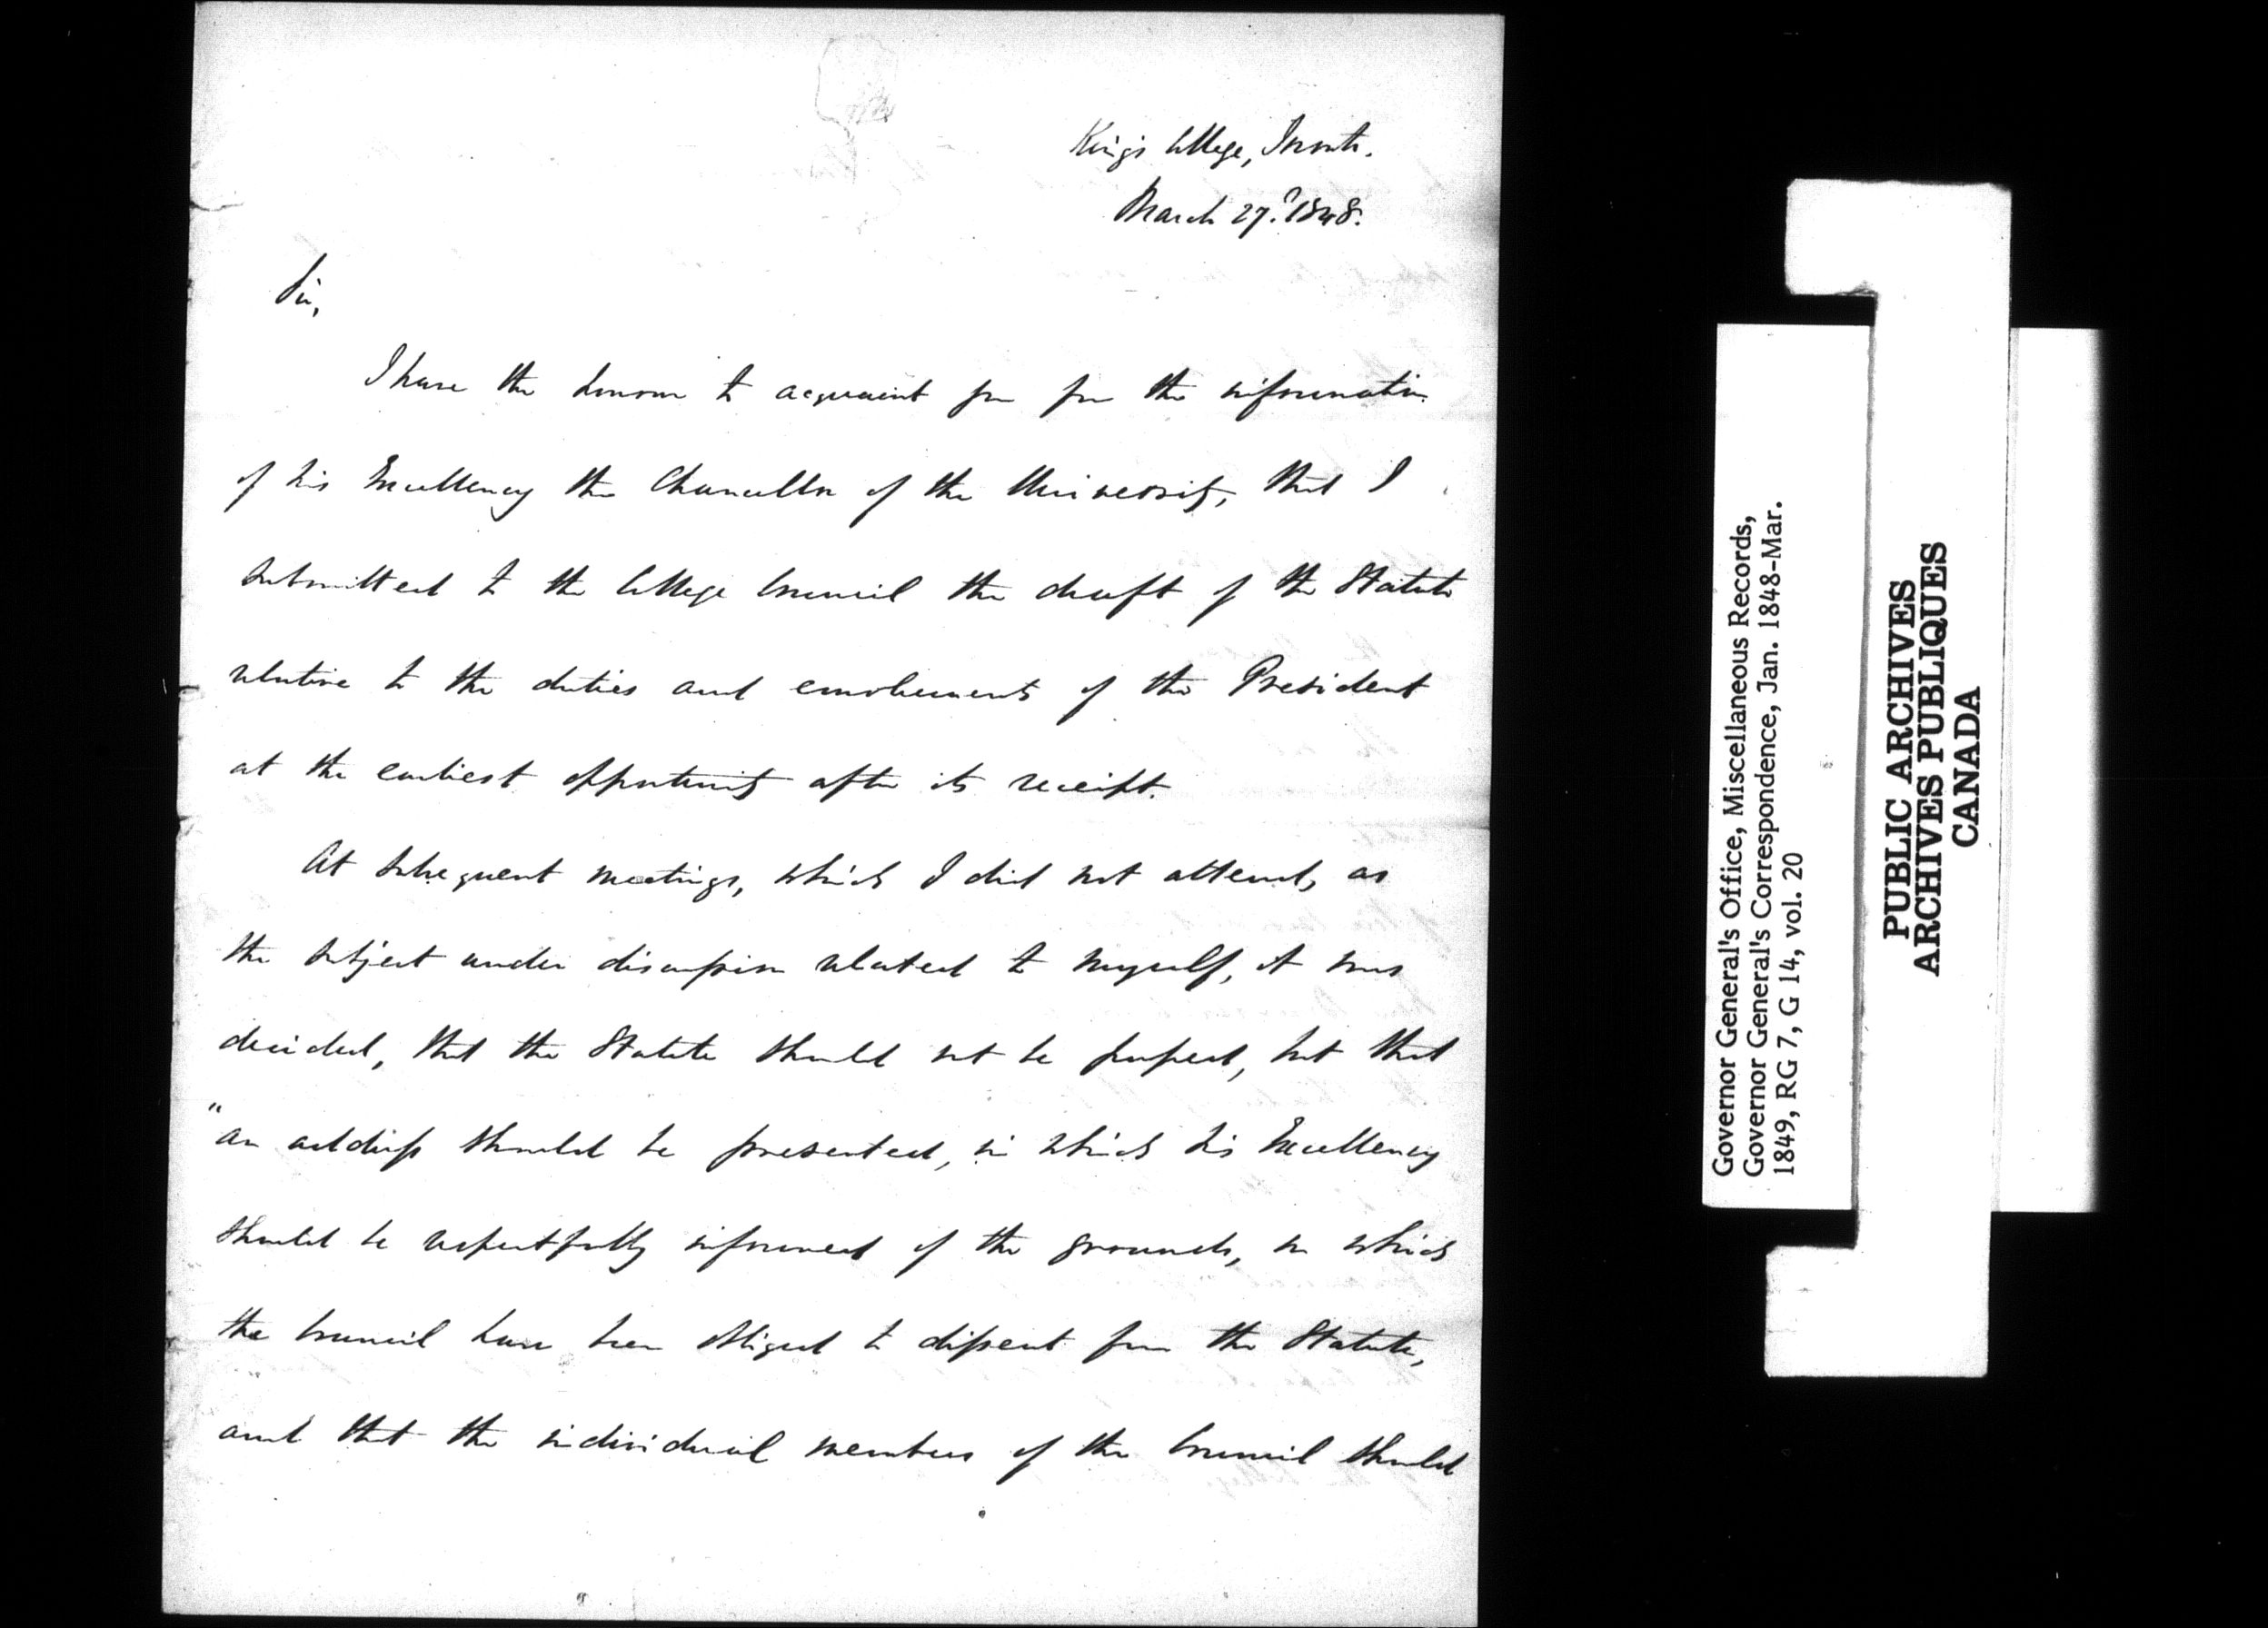 King's College, Toronto.
March 27th 1848.
Sir,
I have the honour to acquaint you for the information
of his Excellency the Chancellor of the University, that I
submitted to the College Council the draft of the Statute
relative to the duties and emoluments of the President
at the earliest opportunity after its receipt.
At subsequent meetings, which I did not attend, as
the subject under discussion related to myself, it was
decided, that the Statute should not be passed, but that
"an address should be presented, in which his Excellency
should be respectfully informed of the grounds, on which
the Council have been obliged to dissent from the Statute,
and that the individual members of the Council should
Governor General's Office, Miscellaneous Records,
Governor General's Correspondence, Jan. 1848-Mar.
1849, RG 7, G 14, vol. 20
PUBLIC ARCHIVES
ARCHIVES PUBLIQUES
CANADA